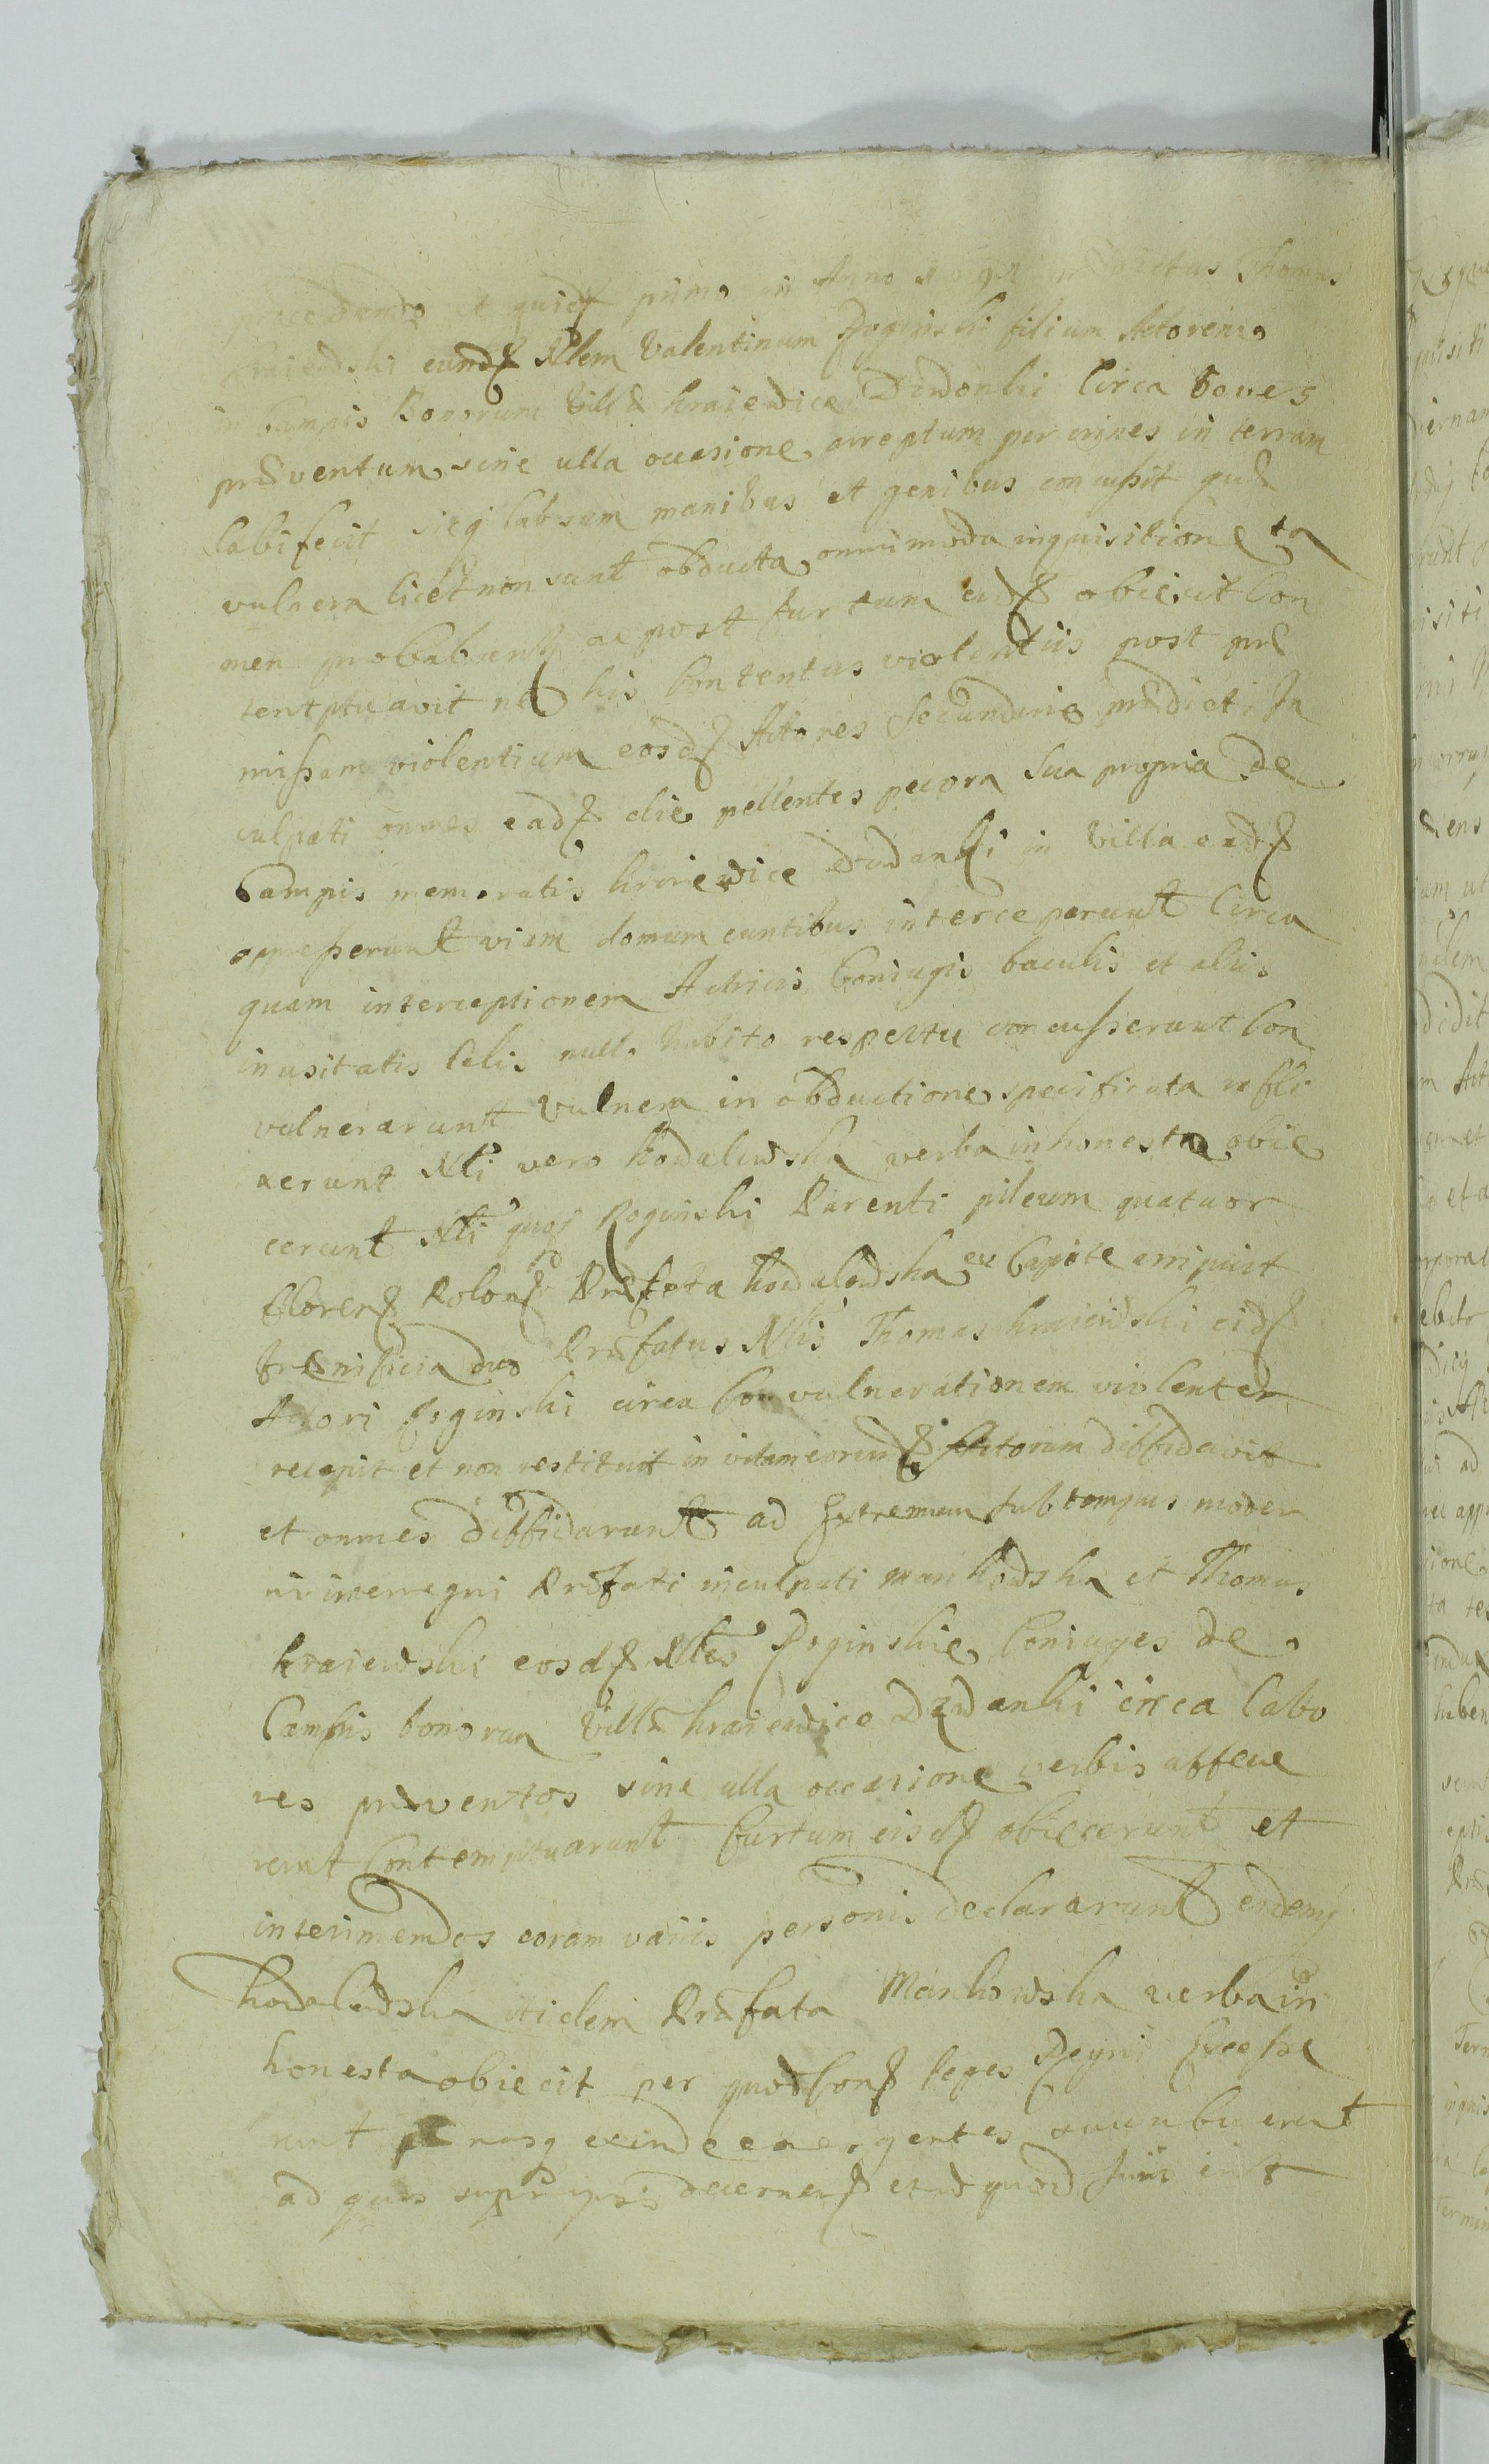 procedendo et quidę primo in Anno Thomas
Kraiewski eundę Nlem Valentinum Roginski filium Actorem
in Campis Bonorum Villæ Kraiewice Circa boves
præventum sine ulla occasione arreptum per crines in terram
labifecit sicq labsum manibus et genibus concussit quæ
vulnera licet non sunt obducta omnimoda inquisitione ta
men probabuntę ac post furtum eidę obiicit Con
temptuavit nec his Contentus violentiis post præ
missam violentiam eosdę Actores Secundarie prædicti In
culpati omnes eadę die pellentes pecora sua propria de
Campis memoratis Kraiewice in Villa eadę
oppresserunt viam domum euntibus interceperunt Circa
quam interceptionem Actricis Coniugis baculis et aliis
inusitatis telis nullo habito respectu concusserunt Con
vulnerarunt vulnera in obductione specificata infli
xerunt Nli vero Kowalewska verba inhonesta obie
cerunt Nli quoq Roginski Parenti pileum quatuor
florenę Polonę Præfata Kowalewska ex Capite arripuit
frænificia duo Præfatus Nlis Thomas Kraiewski eidę
Actori Roginski circa Convulnerationem violenter
recepit et non restituit in vitam eorundę Actorum diffidavit
et omnes diffidarunt ad Extremum sub tempus moder
ni interregni Præfati inculpati Mankowska et Thomas
Kraiewski eosdę Nles Roginskie Coniuges de
Campis bonorum Villæ Kraiewice Dzwdanki circa labo
res præventos sine ulla occasione verbis affece
runt Contemptuarunt furtum eisdę obiecerunt et
interimendos coram variis personis declararunt eidemq
Kowalewska itidem Præfata Mankowska verba in
honesta obiecit per quod Conę leges Regni Excesse
runt pænasq exinde emergentes succubuerunt
ad quas supr ipsis decernenę et id quod Iuris erit